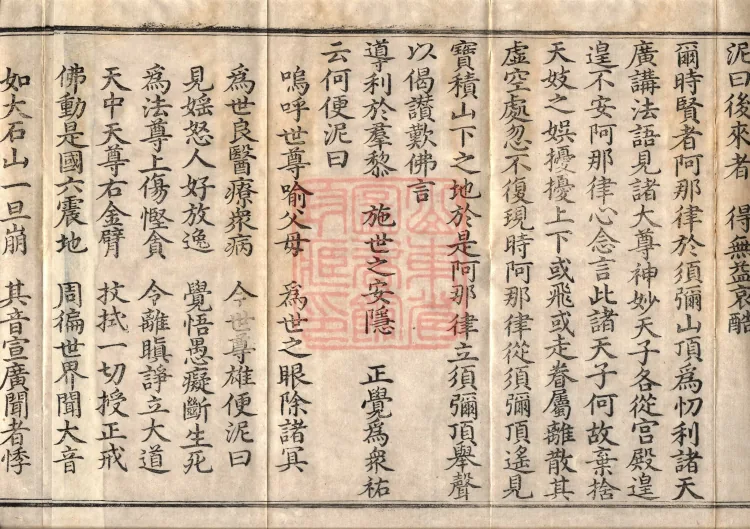 泥曰後來者　得無益哀酷
爾時賢者阿那律於須彌山頂爲忉利諸天
廣講法語見諸大尊神妙天子各從宮殿遑
遑不安阿那律心念言此諸天子何故棄捨
天妓之娛擾擾上下或飛或走眷屬離散其
虛空處忽不復現時阿那律從須彌頂遙見
寶積山下之地於是阿那律立須彌頂舉聲
以偈讃歎佛言
導利於羣黎　施世之安隱　正覺爲衆祐
云何便泥曰
嗚呼世尊喻父母　爲世之眼除諸冥
爲世良醫療衆病　今世尊雄便泥曰
見婬怒人好放逸　覺悟愚癡斷生死
爲法尊上傷慳貪　令離瞋諍立大道
天中天尊右金臂　扙拭一切授正戒
佛動是國六震地　周徧世界聞大音
如大石山一旦崩　其音宣廣聞者悸